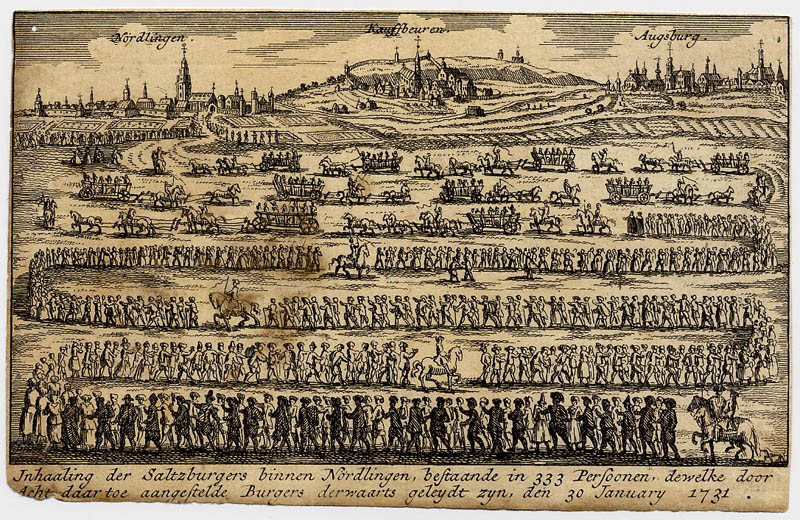 Nördlingen.
Kauffbeuren.
Augsburg.
Inhaaling der Saltzburgers binnen Nördlingen, bestaande in 333 Persoonen, dewelke door
Acht daar toe aangestelde Burgers derwaarts geleydt zyn, den 30 January 1731